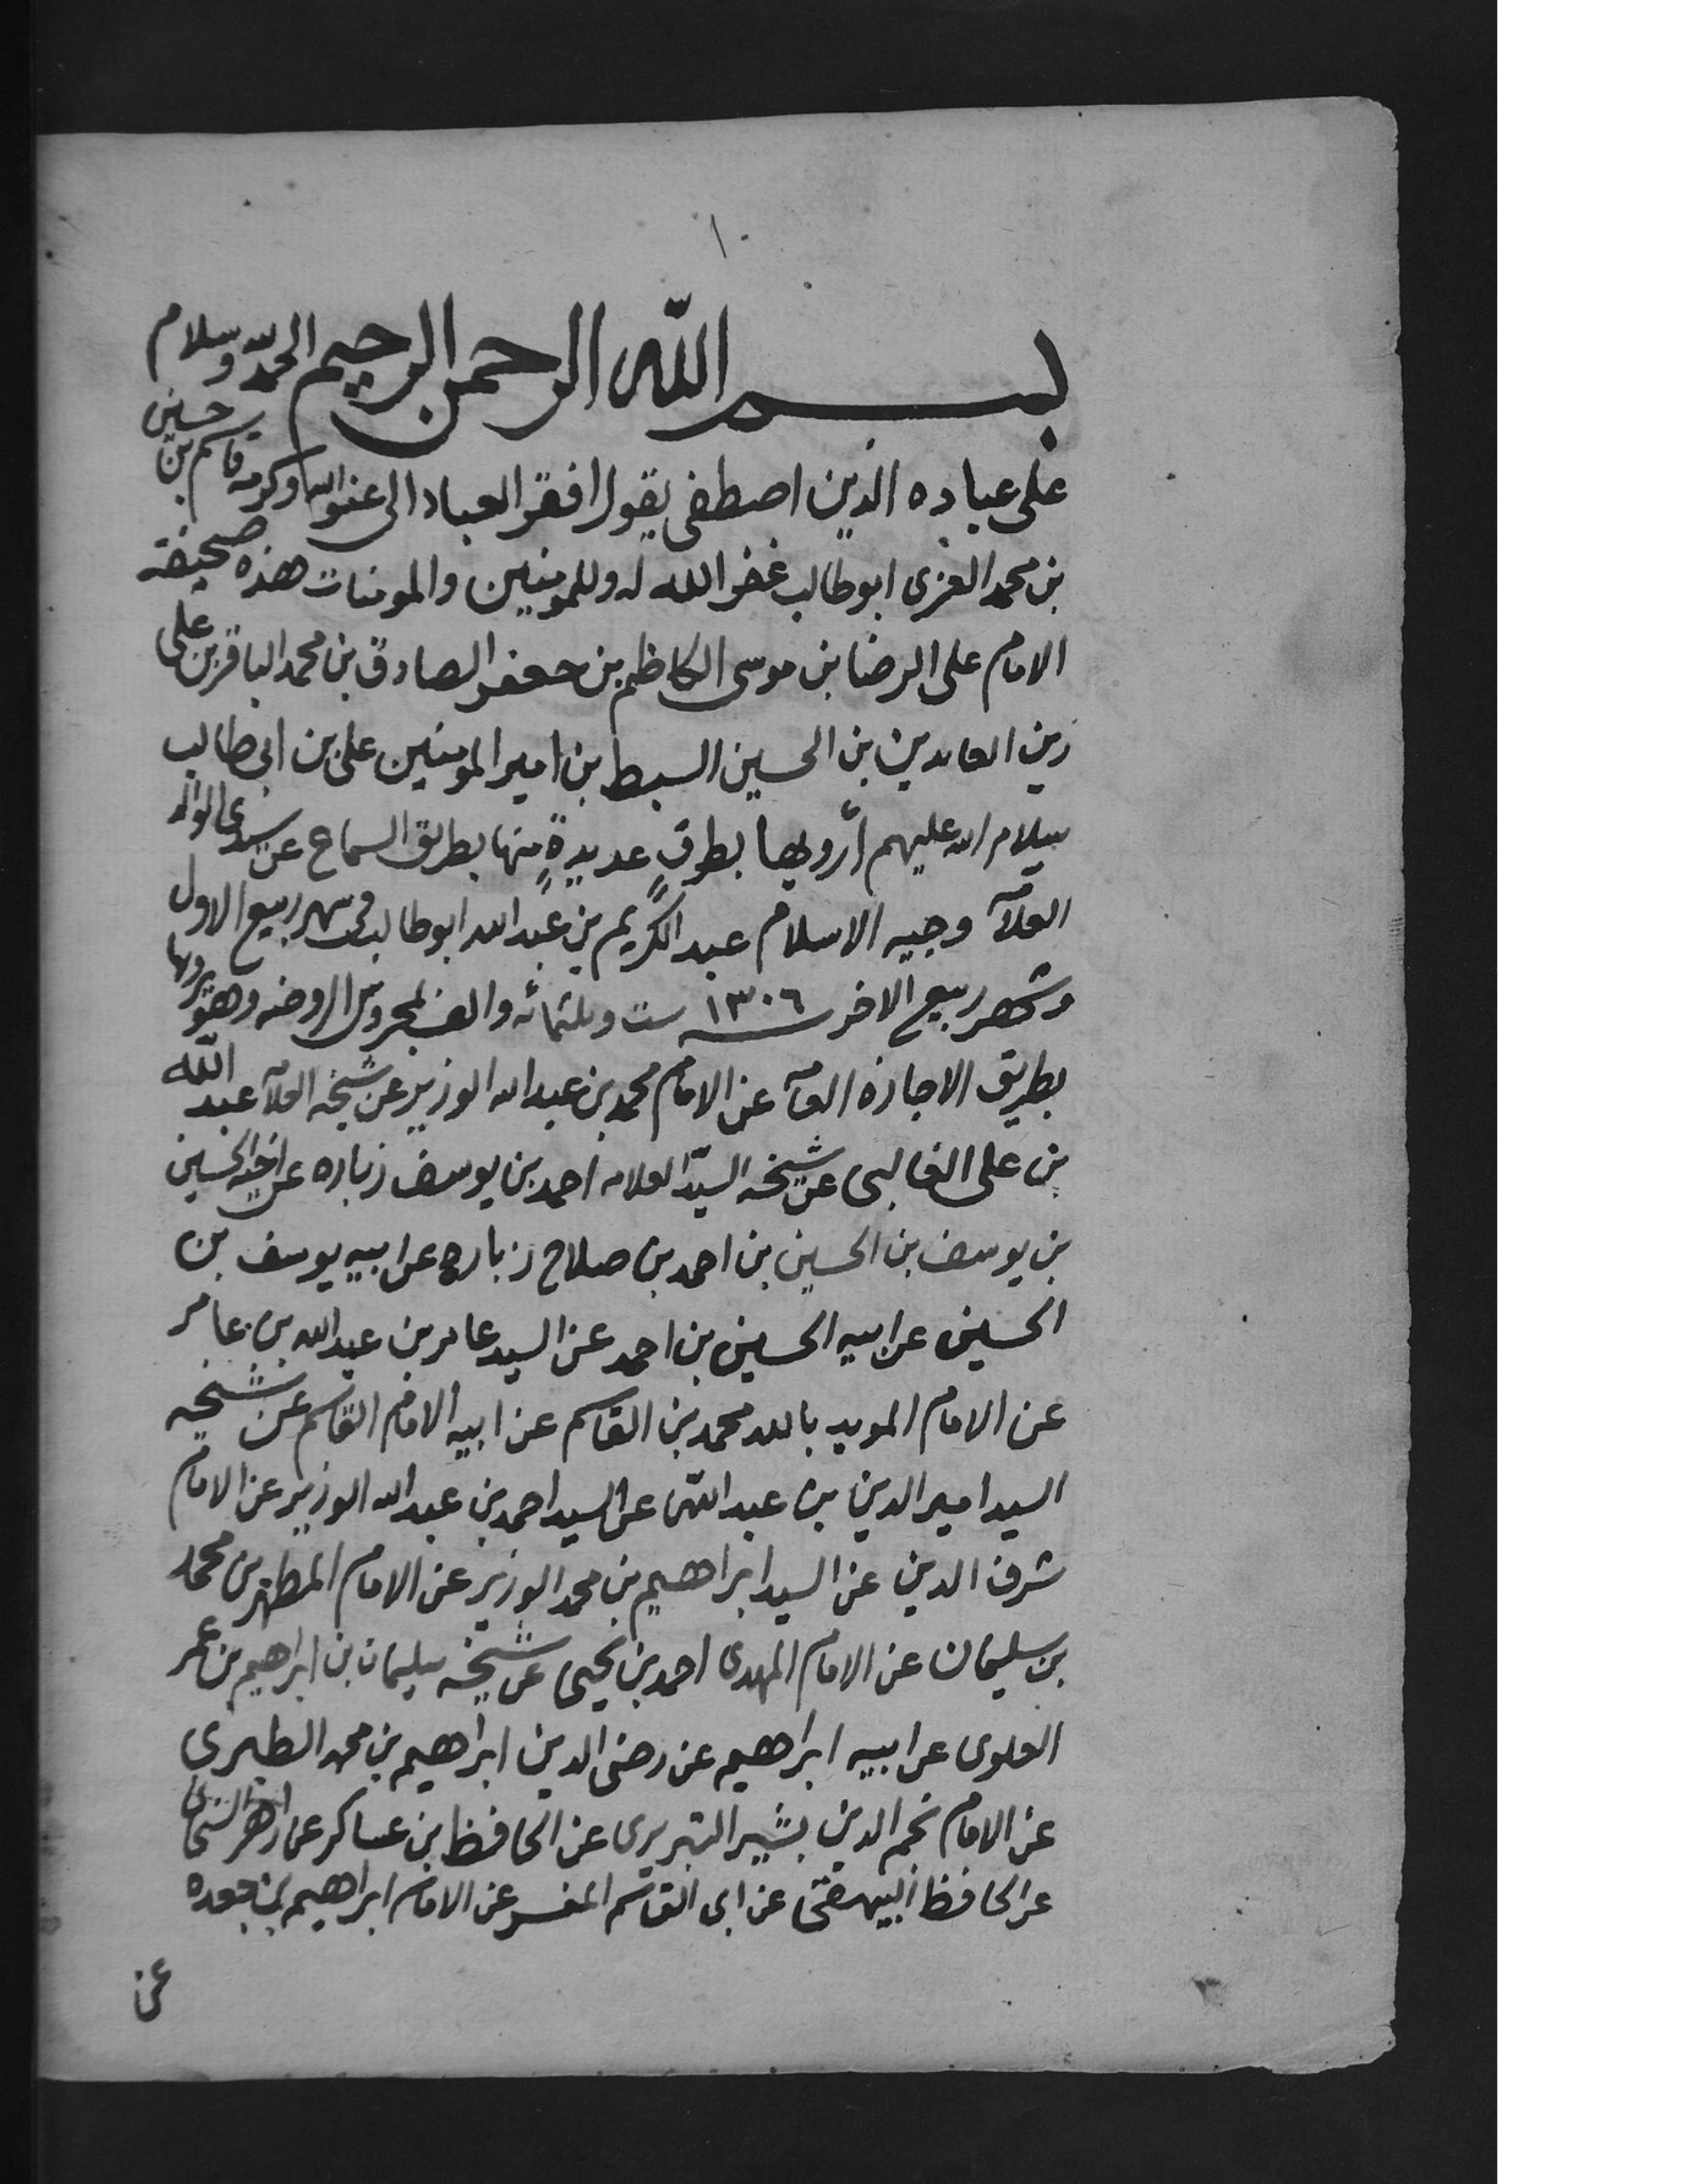 ١
بسم الله الرحمن الرحيم الحمد لله وسلام
على عباده الذين اصطفى يقول افقر العباد الى عفو الله وكرمه قاسم بن حسين
بن محمد العزى ابو طالب غفر الله له وللمومنين والمومنات هذه صحيفة
الامام على الرضا بن موسى الكاظم بن جعفر الصادق بن محمد الباقر بن على
زين العابدين بن الحسين السبط بن امير المومنين على بن ابى طالب
سلام الله عليهم أرويها بطرقٍ عديدةٍ منها بطريق السماع عن سيدى الوالد
العلآمه وجيه الاسلام عبد الكريم بن عبد الله ابو طالب فى شهر ربيع الاول
وشهر ربيع الاخر سنه ١٣٠٦ ست وثلثمائه والف بمحروس الروضه وهو يرويها
بطريق الاجازه العآمه عن الامام محمد بن عبد الله الوزير عن شيخه العلآمه عبد الله
بن على الغالبى عن شيخه السيّد العلامه احمد بن يوسف زباره عن اخيه الحسين
بن يوسف بن الحسين بن احمد بن صلاح زباره عن ابيه يوسف بن
الحسين عن ابيه الحسين بن احمد عن السيد عامر بن عبد الله بن عامر
عن الامام المويد بالله محمد بن القاسم عن ابيه الامام القاسم عن شيخه
السيد امير الدين بن عبد الله عن السيد احمد بن عبد الله الوزير عن الامام
شرف الدين عن السيد ابراهيم بن محمد الوزير عن الامام المطهر بن محمد
بن سليمان عن الامام المهدى احمد بن يحيى عن شيخه سليمان بن ابراهيم بن عمر
العلوى عن ابيه ابراهيم عن رضى الدين ابراهيم بن محمد الطبرى
عن الامام نجم الدين بشير التبريزى عن الحافظ بن عساكر عن زاهر الشحامى
عن الحافظ البيهقى عن ابى القاسم المفسر عن الامام ابراهيم بن جعده
عن